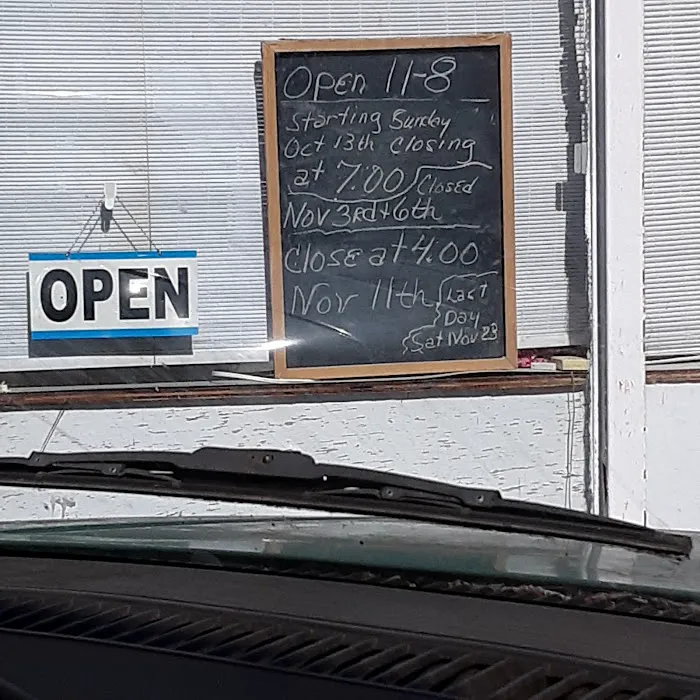 OPEN
Open 11-8
Starting Sunday
Oct 13th closing
at 7:00 Closed
Nov 3rd + 6th
Close at 4:00
Nov 11th Last
Day
Sat Nov 23